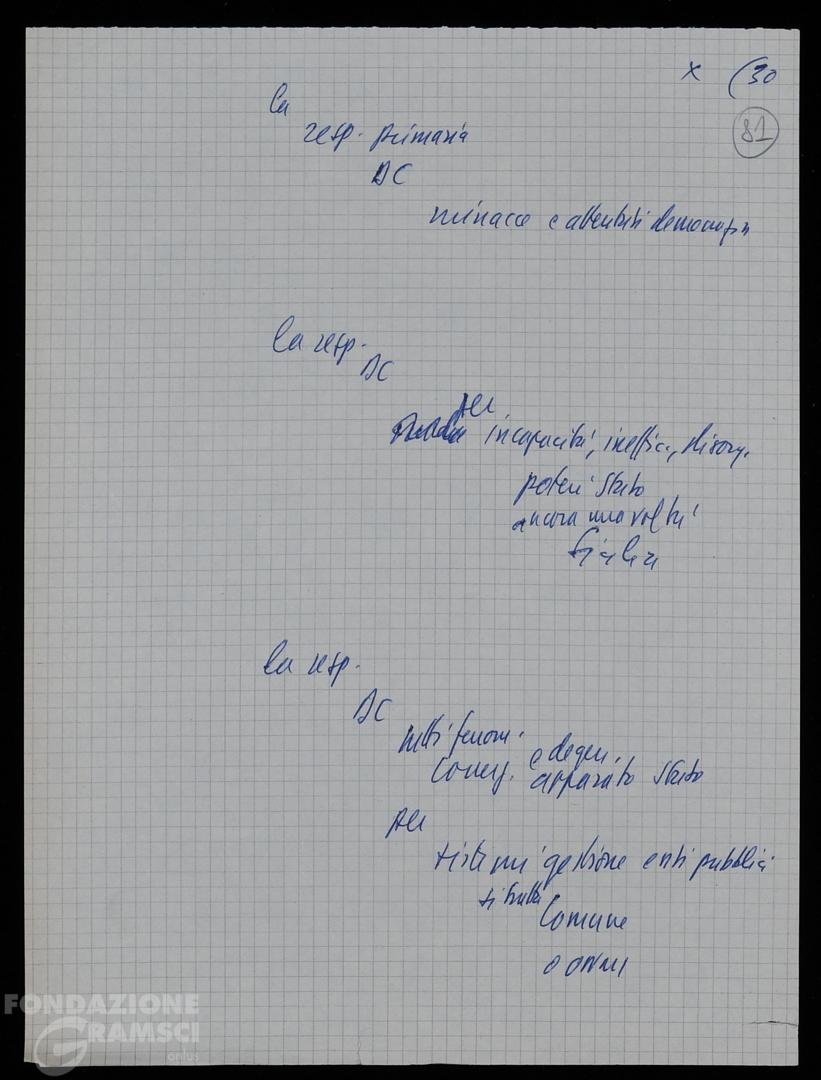 x (30
81
la
resp. primaria
DC
minacce e attentati democrazia
la resp.
DC
per
incapacità, ineffic., disorg.
poteri Stato
ancora una volta
Sicilia
la resp.
DC
nei fenom.
e degen.
corruz. apparato Stato
per
sistemi gestione enti pubblici
si tratti
Comune
o ONMI
FONDAZIONE
GRAMSCI
onlus